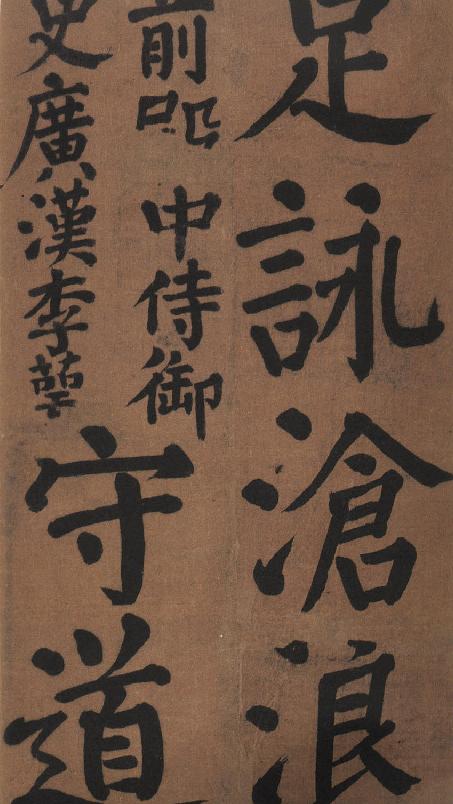 足詠滄浪
前中侍御
史廣漢李萼
守道